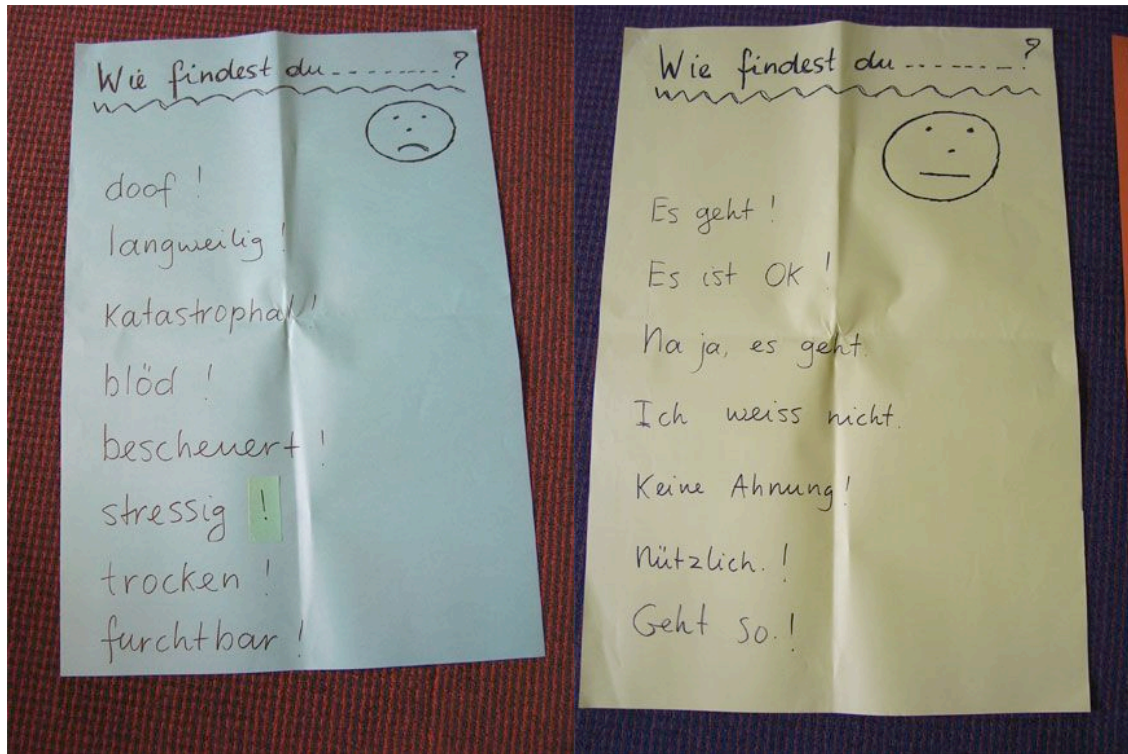 Wie findest du ........?
doof !
langweilig !
Katastrophal !
blöd !
bescheuert !
stressig !
trocken !
furchtbar !
Wie findest du .......?
Es geht !
Es ist OK !
Na ja, es geht.
Ich weiss nicht.
Keine Ahnung!
Nützlich. !
Geht so. !